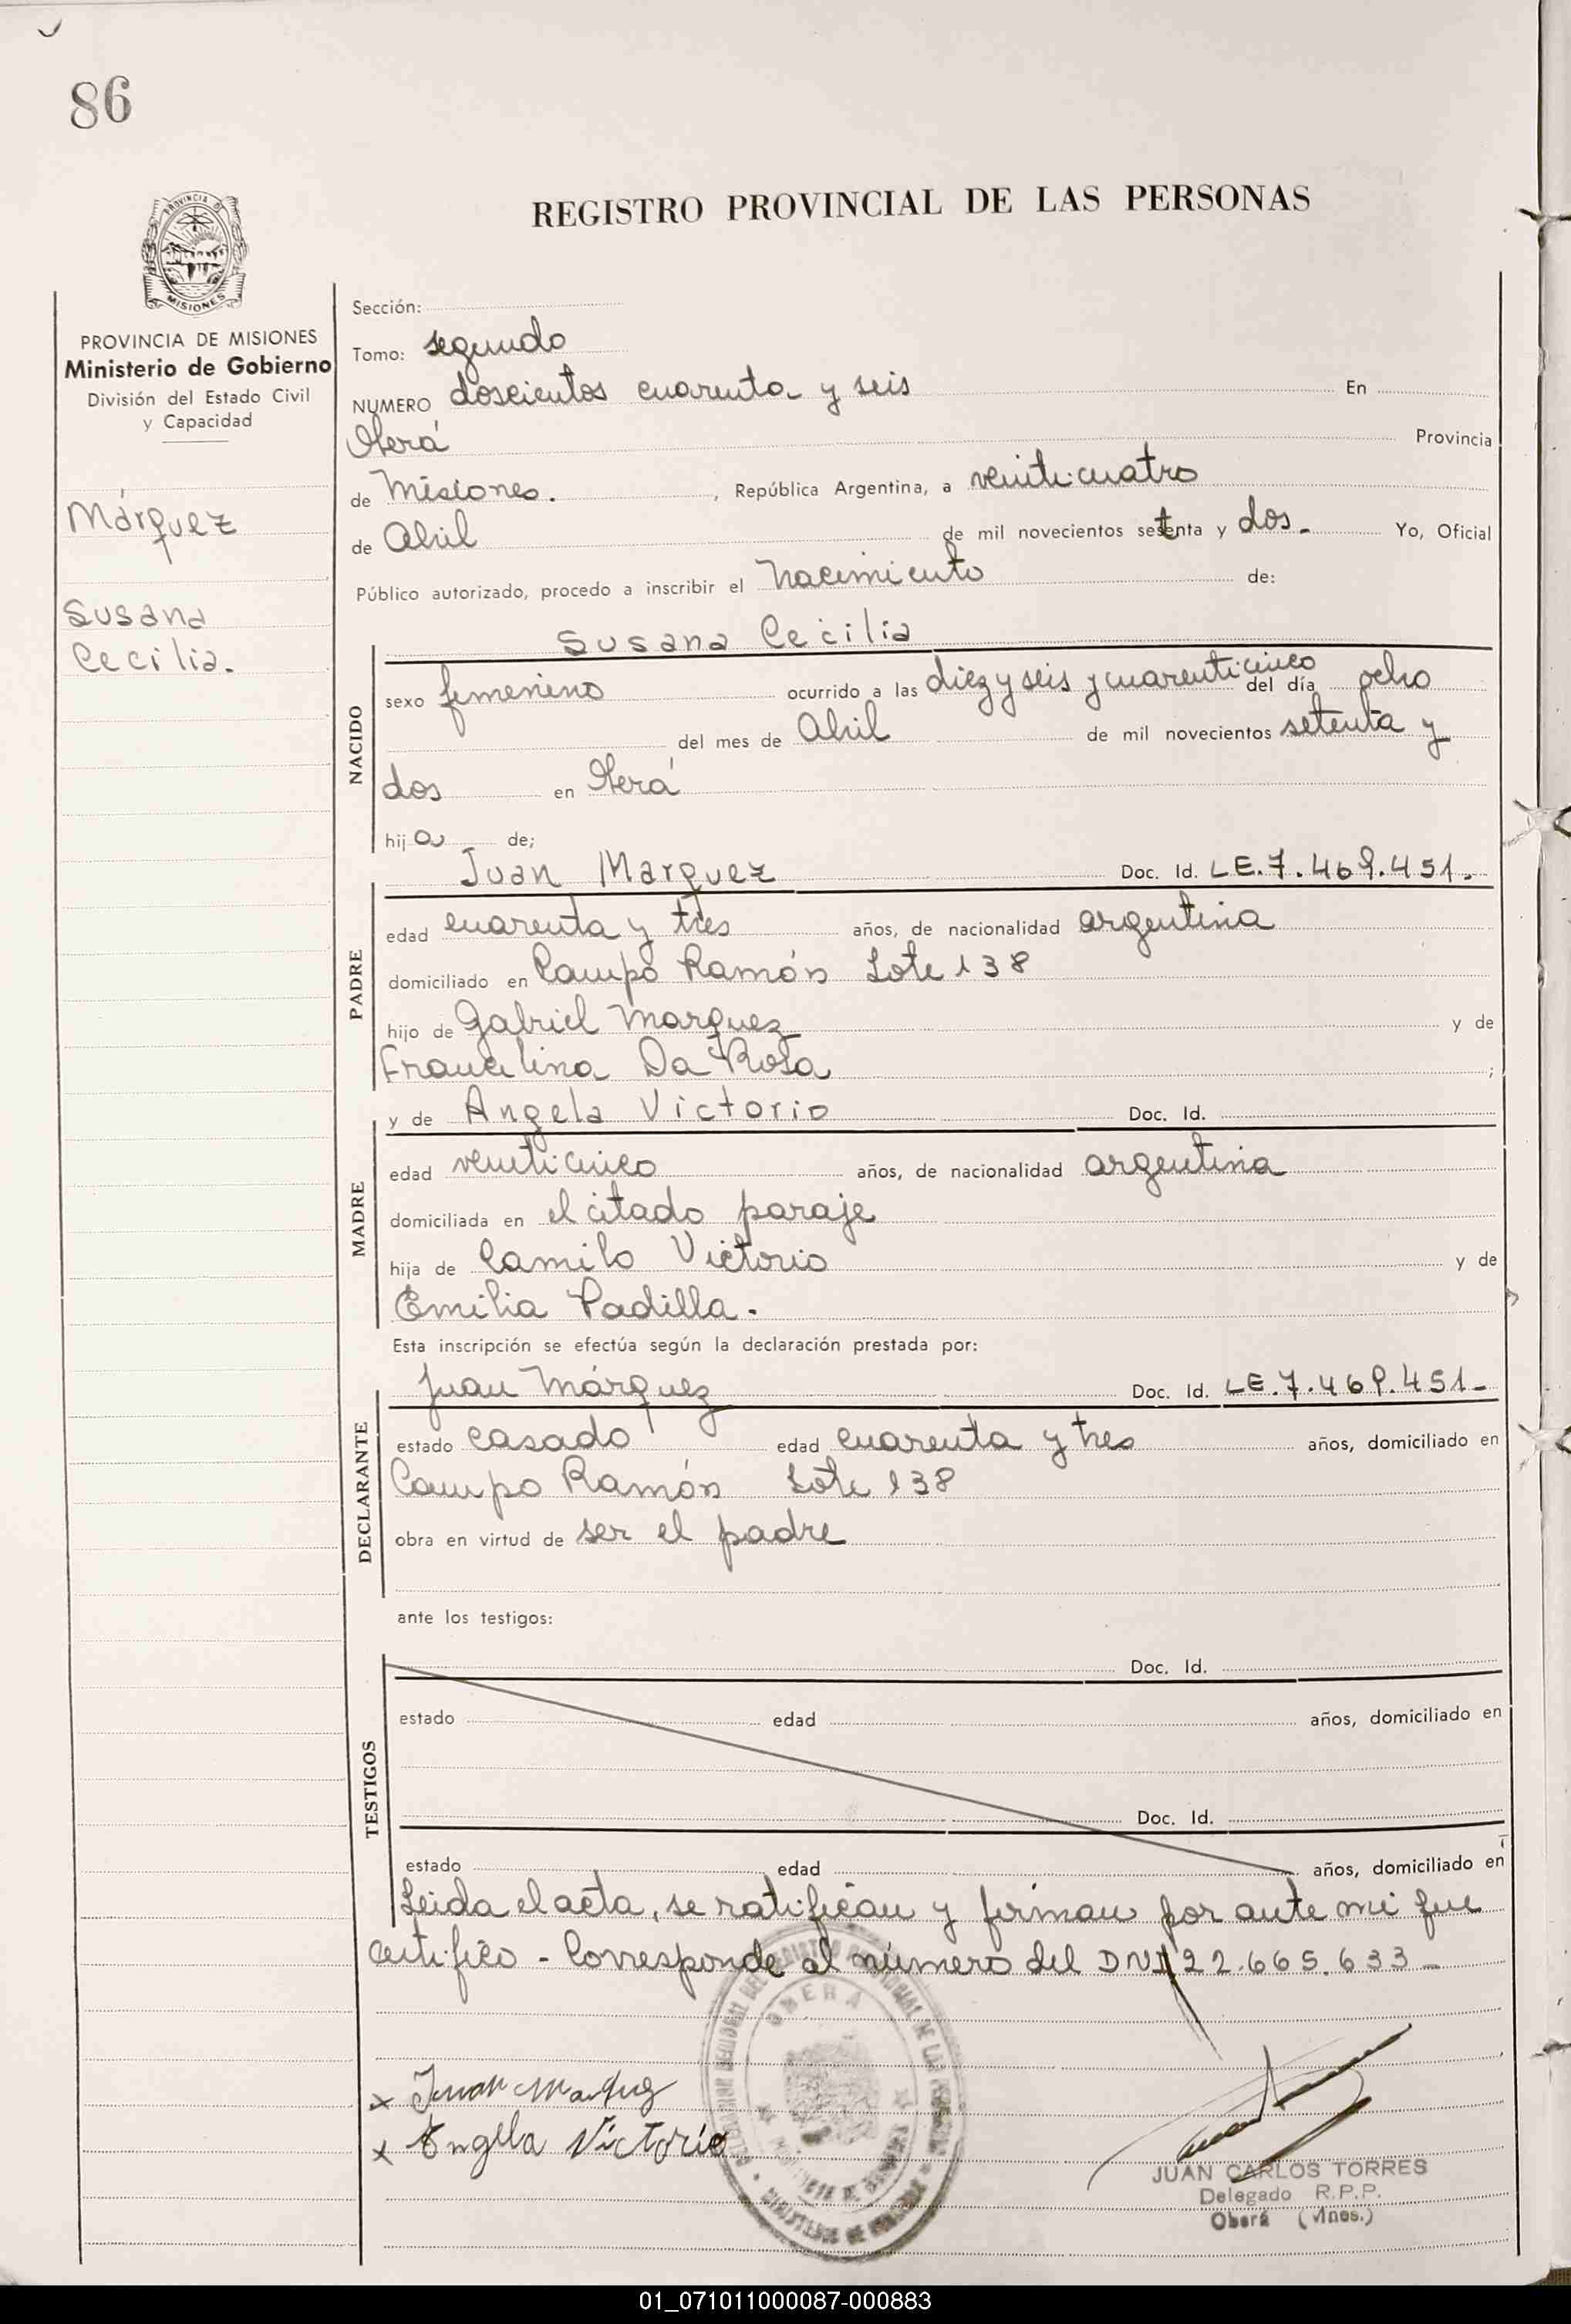 86
REGISTRO PROVINCIAL DE LAS PERSONAS
PROVINCIA DE
MISIONES
PROVINCIA DE MISIONES
Ministerio de Gobierno
División del Estado Civil
y Capacidad
Márquez
Susana
Cecilia.
Sección:
Tomo: segundo
NUMERO doscientos cuarenta y seis En
Oberá Provincia
de Misiones. , República Argentina, a veinticuatro
de Abril de mil novecientos setenta y dos. Yo, Oficial
Público autorizado, procedo a inscribir el nacimiento de:
Susana Cecilia
NACIDO
sexo femenino ocurrido a las diez y seis y cuarenticinco del día ocho
del mes de Abril de mil novecientos setenta y
dos en Oberá
hija de;
Juan Marquez Doc. Id. LE.7.469.451.
PADRE
edad cuarenta y tres años, de nacionalidad argentina
domiciliado en Campo Ramón Lote 138
hijo de Gabriel Marquez y de
Francelina Da Rosa ;
y de Angela Victorio Doc. Id.
MADRE
edad veinticinco años, de nacionalidad argentina
domiciliada en el citado paraje
hija de Camilo Victorio y de
Emilia Padilla.
Esta inscripción se efectúa según la declaración prestada por:
Juan Márquez Doc. Id. LE.7.469.451-
DECLARANTE
estado casado edad cuarenta y tres años, domiciliado en
Campo Ramón Lote 138
obra en virtud de ser el padre
ante los testigos:
Doc. Id.
TESTIGOS
estado edad años, domiciliado en
Doc. Id.
estado edad años, domiciliado en
Leida el acta, se ratifican y firman por ante mi que
certifico - Corresponde al número del DNI 22.665.633-
OBERA
x Juan Marquez
x Angela Victorio
JUAN CARLOS TORRES
Delegado R.P.P.
Oberá (Mnes.)
01_071011000087-000883